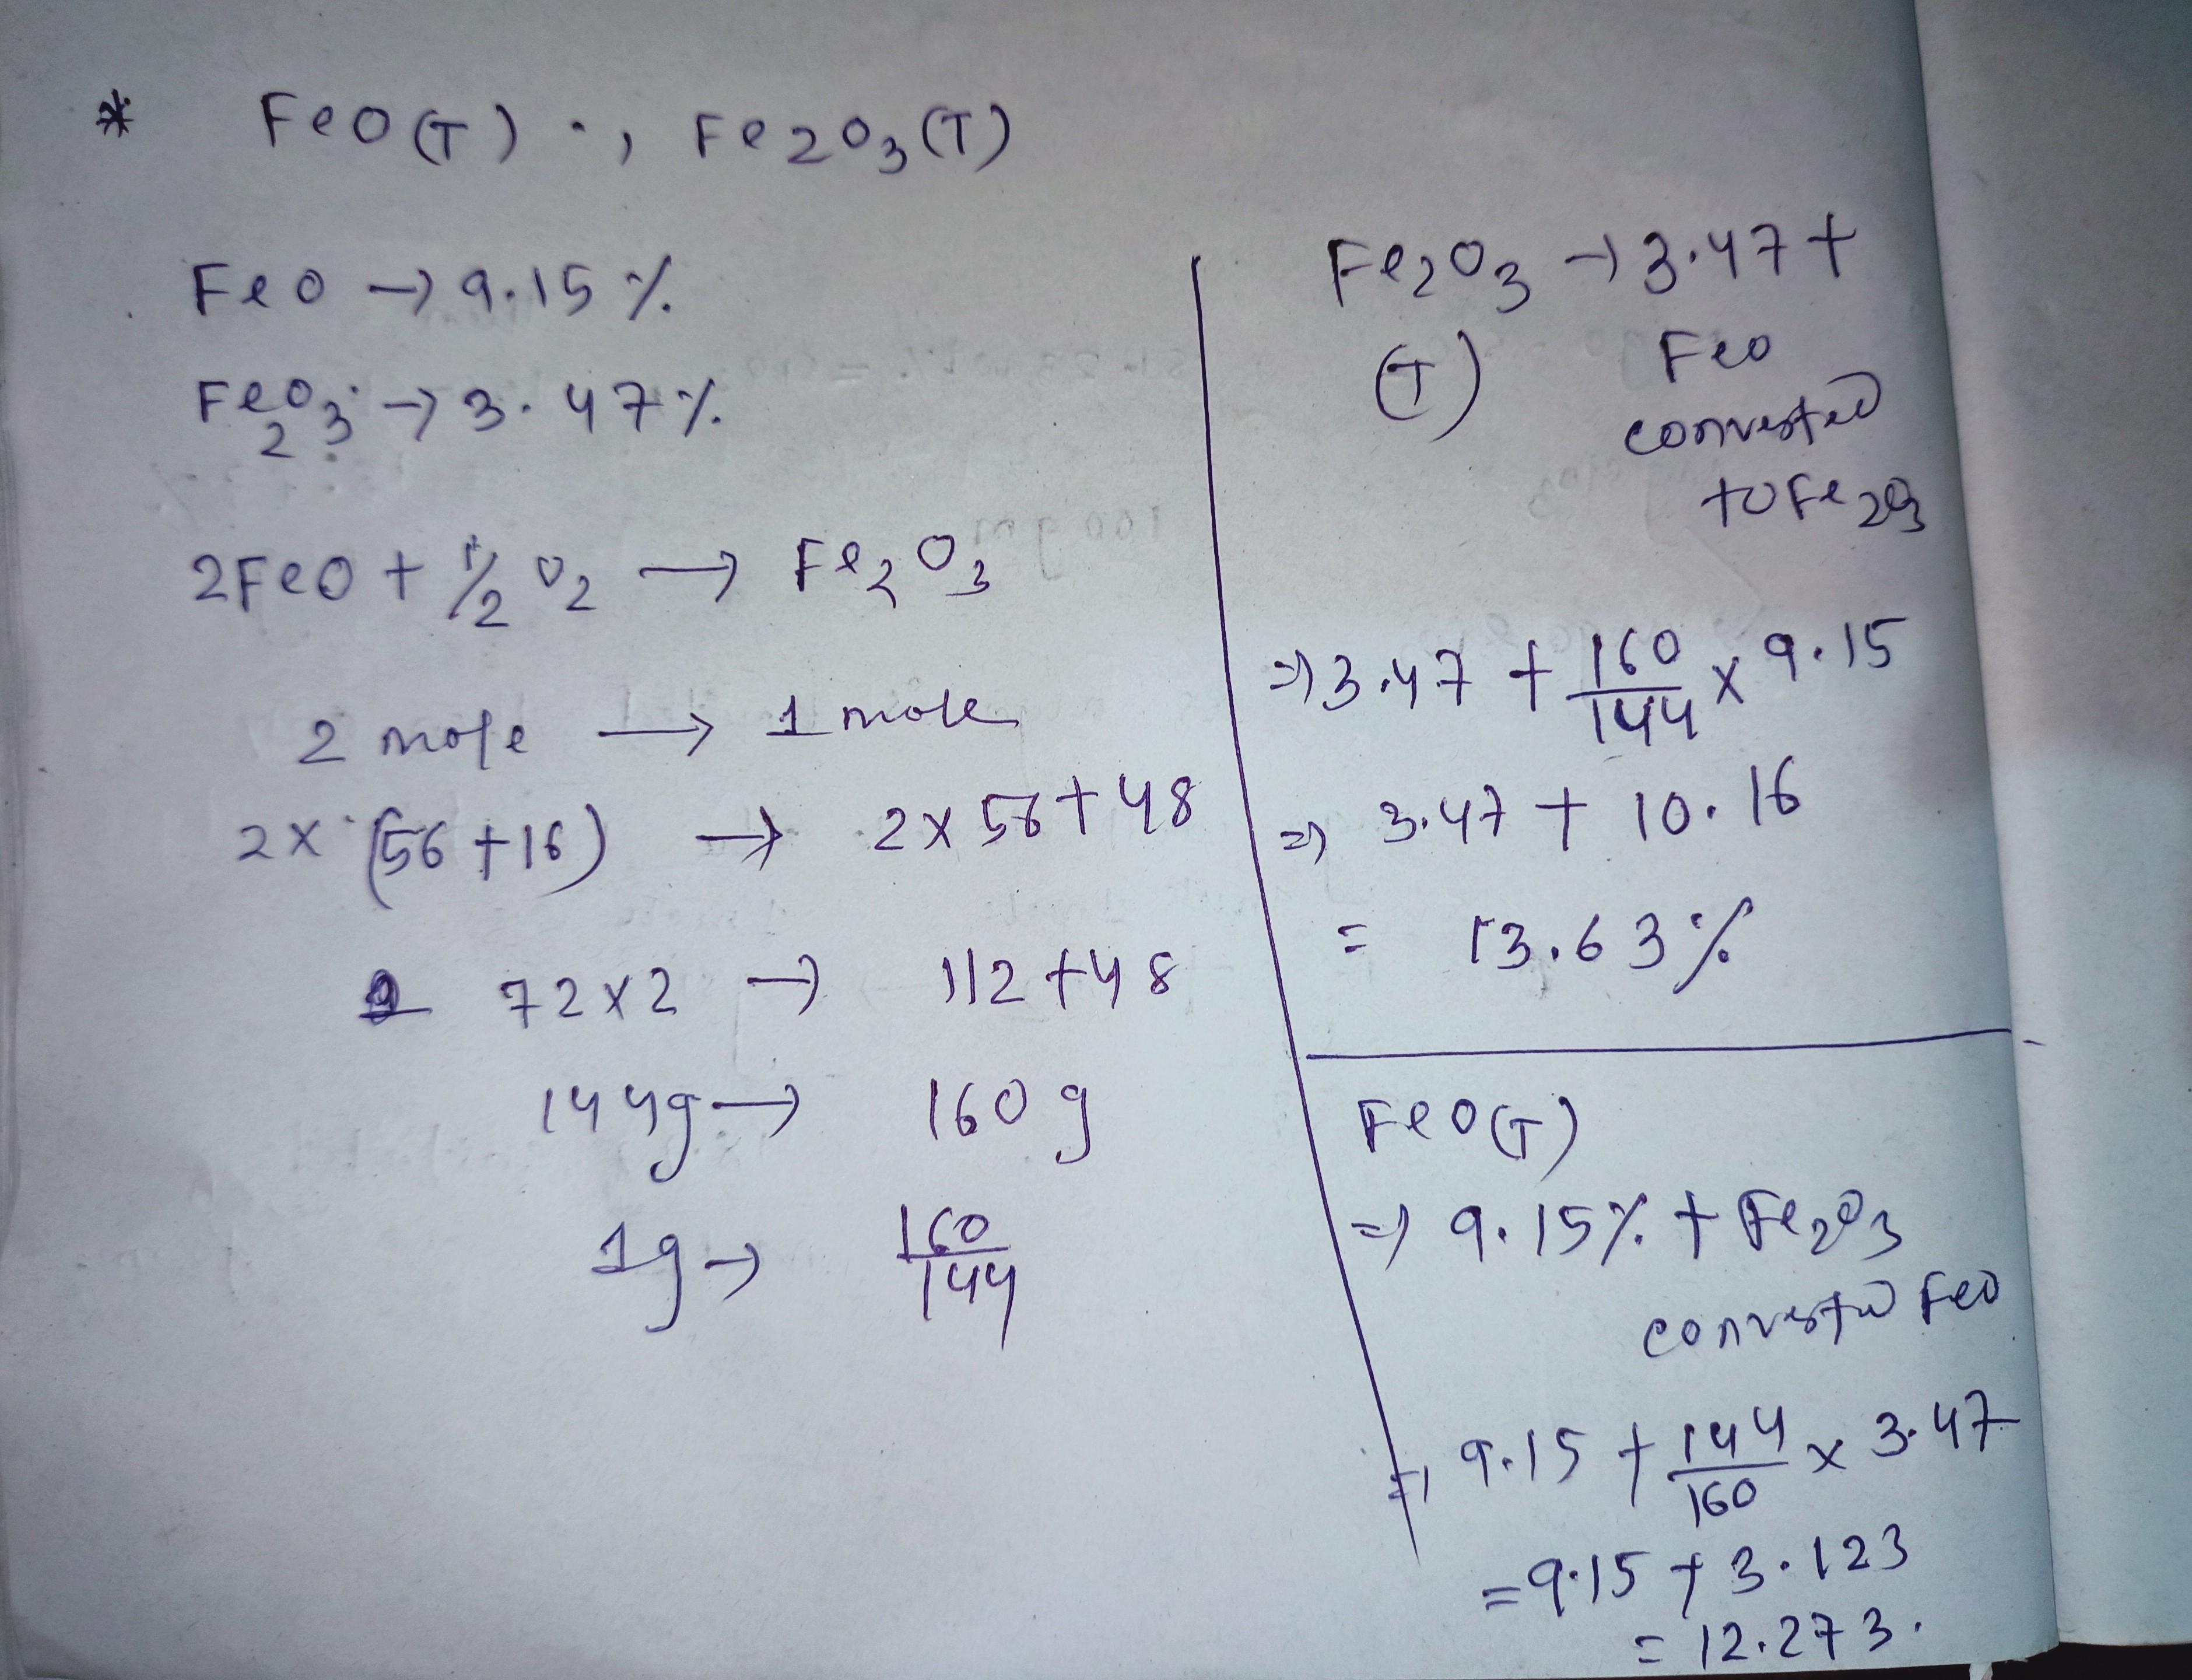 * FeO(T) ., Fe2O3(T)
FeO → 9.15 %
Fe2O3 → 3.47 %
2FeO + 1/2 O2 → Fe2O3
2 mole → 1 mole
2 x (56 + 16) → 2 x 56 + 48
72 x 2 → 112 + 48
144g → 160 g
1g → 160/144
Fe2O3 → 3.47 +
(T) FeO
converted
to Fe2O3
⇒ 3.47 + 160/144 x 9.15
⇒ 3.47 + 10.16
= 13.63 %
FeO(T)
⇒ 9.15 % + Fe2O3
converted FeO
⇒ 9.15 + 144/160 x 3.47
= 9.15 + 3.123
= 12.273.